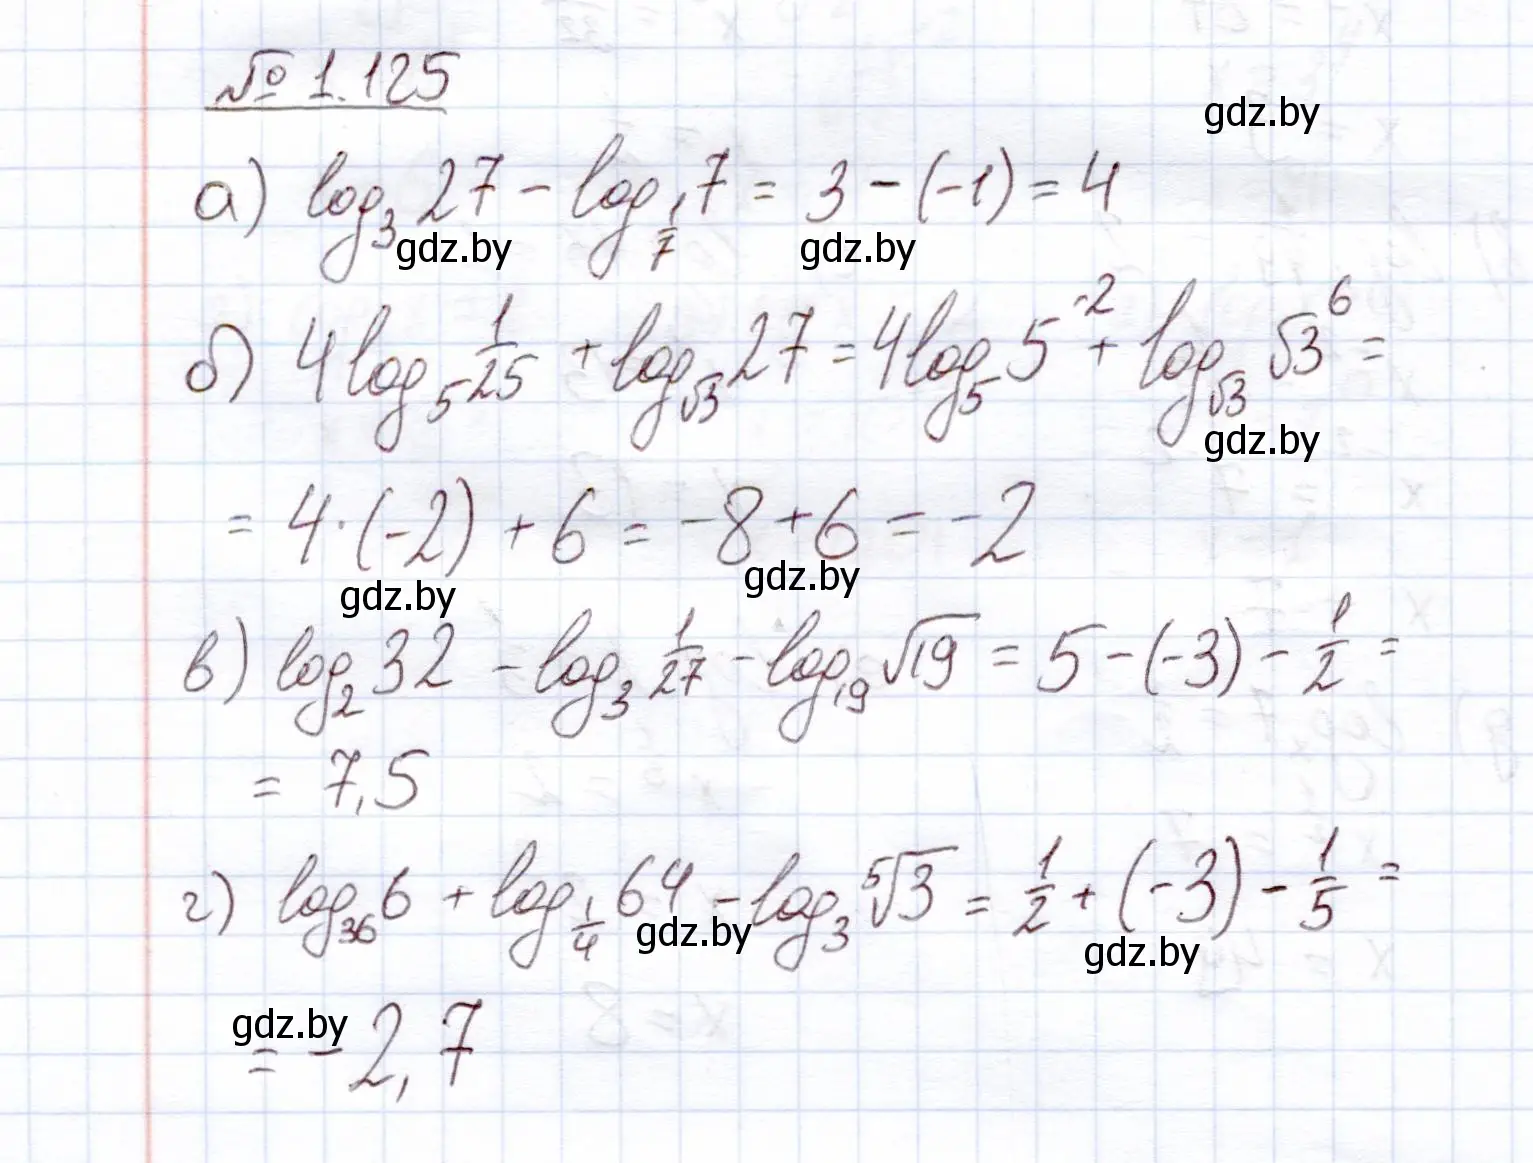 № 1.125
gdz.by
а) log₃ 27 - log_{1/7} 7 = 3 - (-1) = 4
gdz.by gdz.by
б) 4 log₅ 1/25 + log_{√3} 27 = 4 log₅ 5⁻² + log_{√3} √3⁶ =
gdz.by
= 4·(-2) + 6 = -8 + 6 = -2
gdz.by gdz.by
в) log₂ 32 - log₃ 1/27 - log₁₉ √19 = 5 - (-3) - 1/2 =
= 7,5
г) log₃₆ 6 + log_{1/4} 64 - log₃ ⁵√3 = 1/2 + (-3) - 1/5 =
gdz.by gdz.by
gdz.by
= -2,7